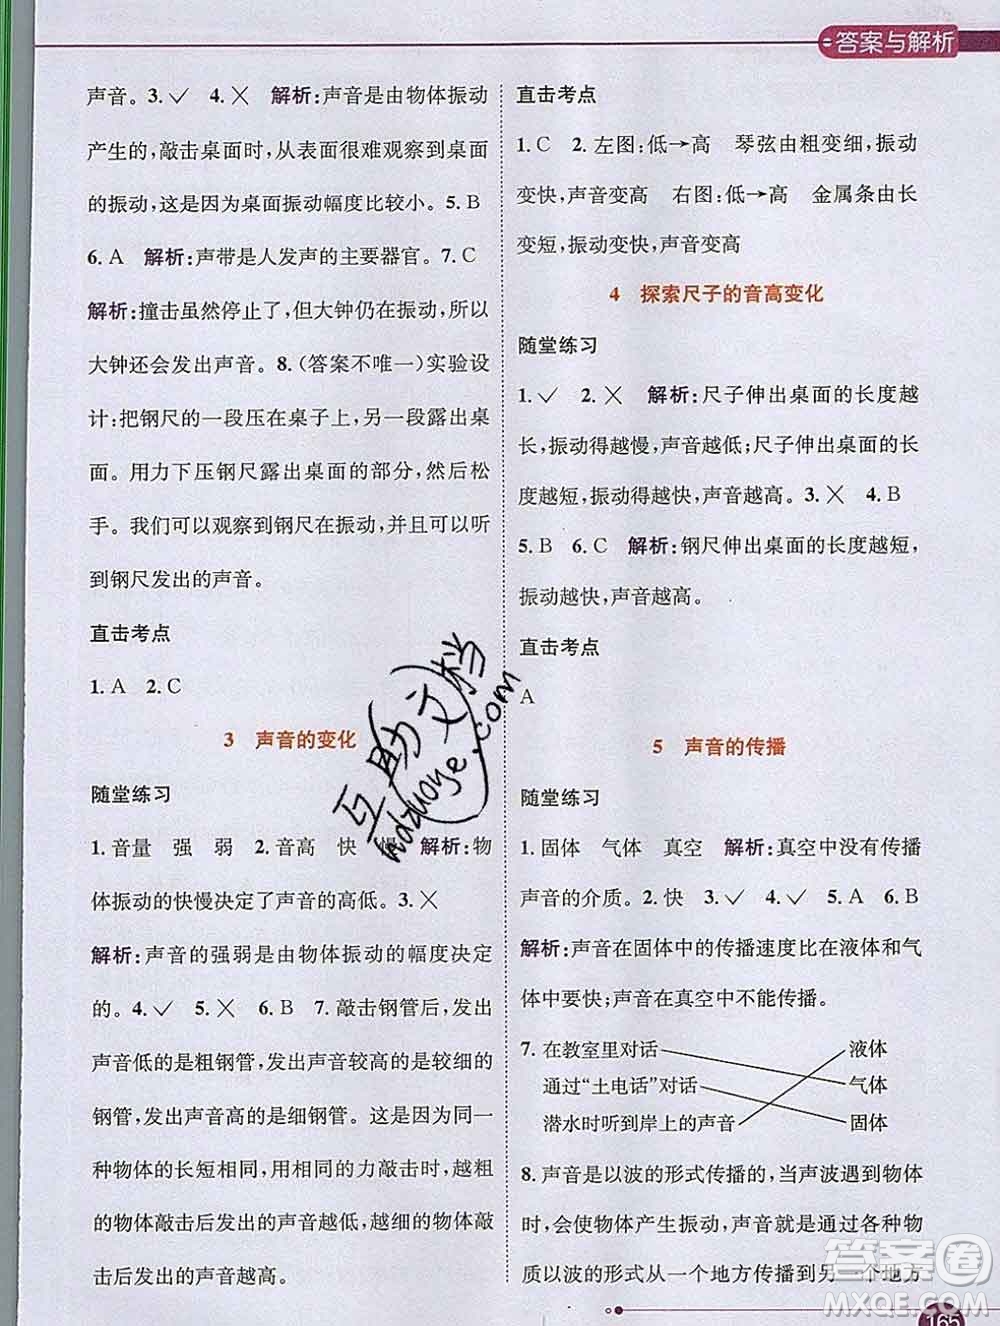 答案与解析
声音。3.✓ 4.✕ 解析:声音是由物体振动
产生的,敲击桌面时,从表面很难观察到桌面
的振动,这是因为桌面振动幅度比较小。5.B
6.A 解析:声带是人发声的主要器官。7.C
解析:撞击虽然停止了,但大钟仍在振动,所以
大钟还会发出声音。8.(答案不唯一)实验设
计:把钢尺的一段压在桌子上,另一段露出桌
面。用力下压钢尺露出桌面的部分,然后松
手。我们可以观察到钢尺在振动,并且可以听
到钢尺发出的声音。
直击考点
1.A 2.C
3 声音的变化
随堂练习
1.音量 强 弱 2.音高 快 解析:物
体振动的快慢决定了声音的高低。3.✕
解析:声音的强弱是由物体振动的幅度决定
的。4.✓ 5.✕ 6.B 7.敲击钢管后,发出
声音低的是粗钢管,发出声音较高的是较细的
钢管,发出声音高的是细钢管。这是因为同一
种物体的长短相同,用相同的力敲击时,越粗
的物体敲击后发出的声音越低,越细的物体敲
击后发出的声音越高。
直击考点
1.C 2.左图:低→高 琴弦由粗变细,振动
变快,声音变高 右图:低→高 金属条由长
变短,振动变快,声音变高
4 探索尺子的音高变化
随堂练习
1.✓ 2.✕ 解析:尺子伸出桌面的长度越
长,振动得越慢,声音越低;尺子伸出桌面的长
度越短,振动得越快,声音越高。3.✕ 4.B
5.B 6.C 解析:钢尺伸出桌面的长度越短,
振动越快,声音越高。
直击考点
A
5 声音的传播
随堂练习
1.固体 气体 真空 解析:真空中没有传播
声音的介质。2.快 3.✓ 4.✓ 5.A 6.B
解析:声音在固体中的传播速度比在液体和气
体中要快;声音在真空中不能传播。
7.在教室里对话 液体
通过“土电话”对话 气体
潜水时听到岸上的声音 固体
8.声音是以波的形式传播的,当声波遇到物体
时,会使物体产生振动,声音就是通过各种物
质以波的形式从一个地方传播到另一个地方
165
互助文档
huzuoye.com
答案圈
MXQE.COM